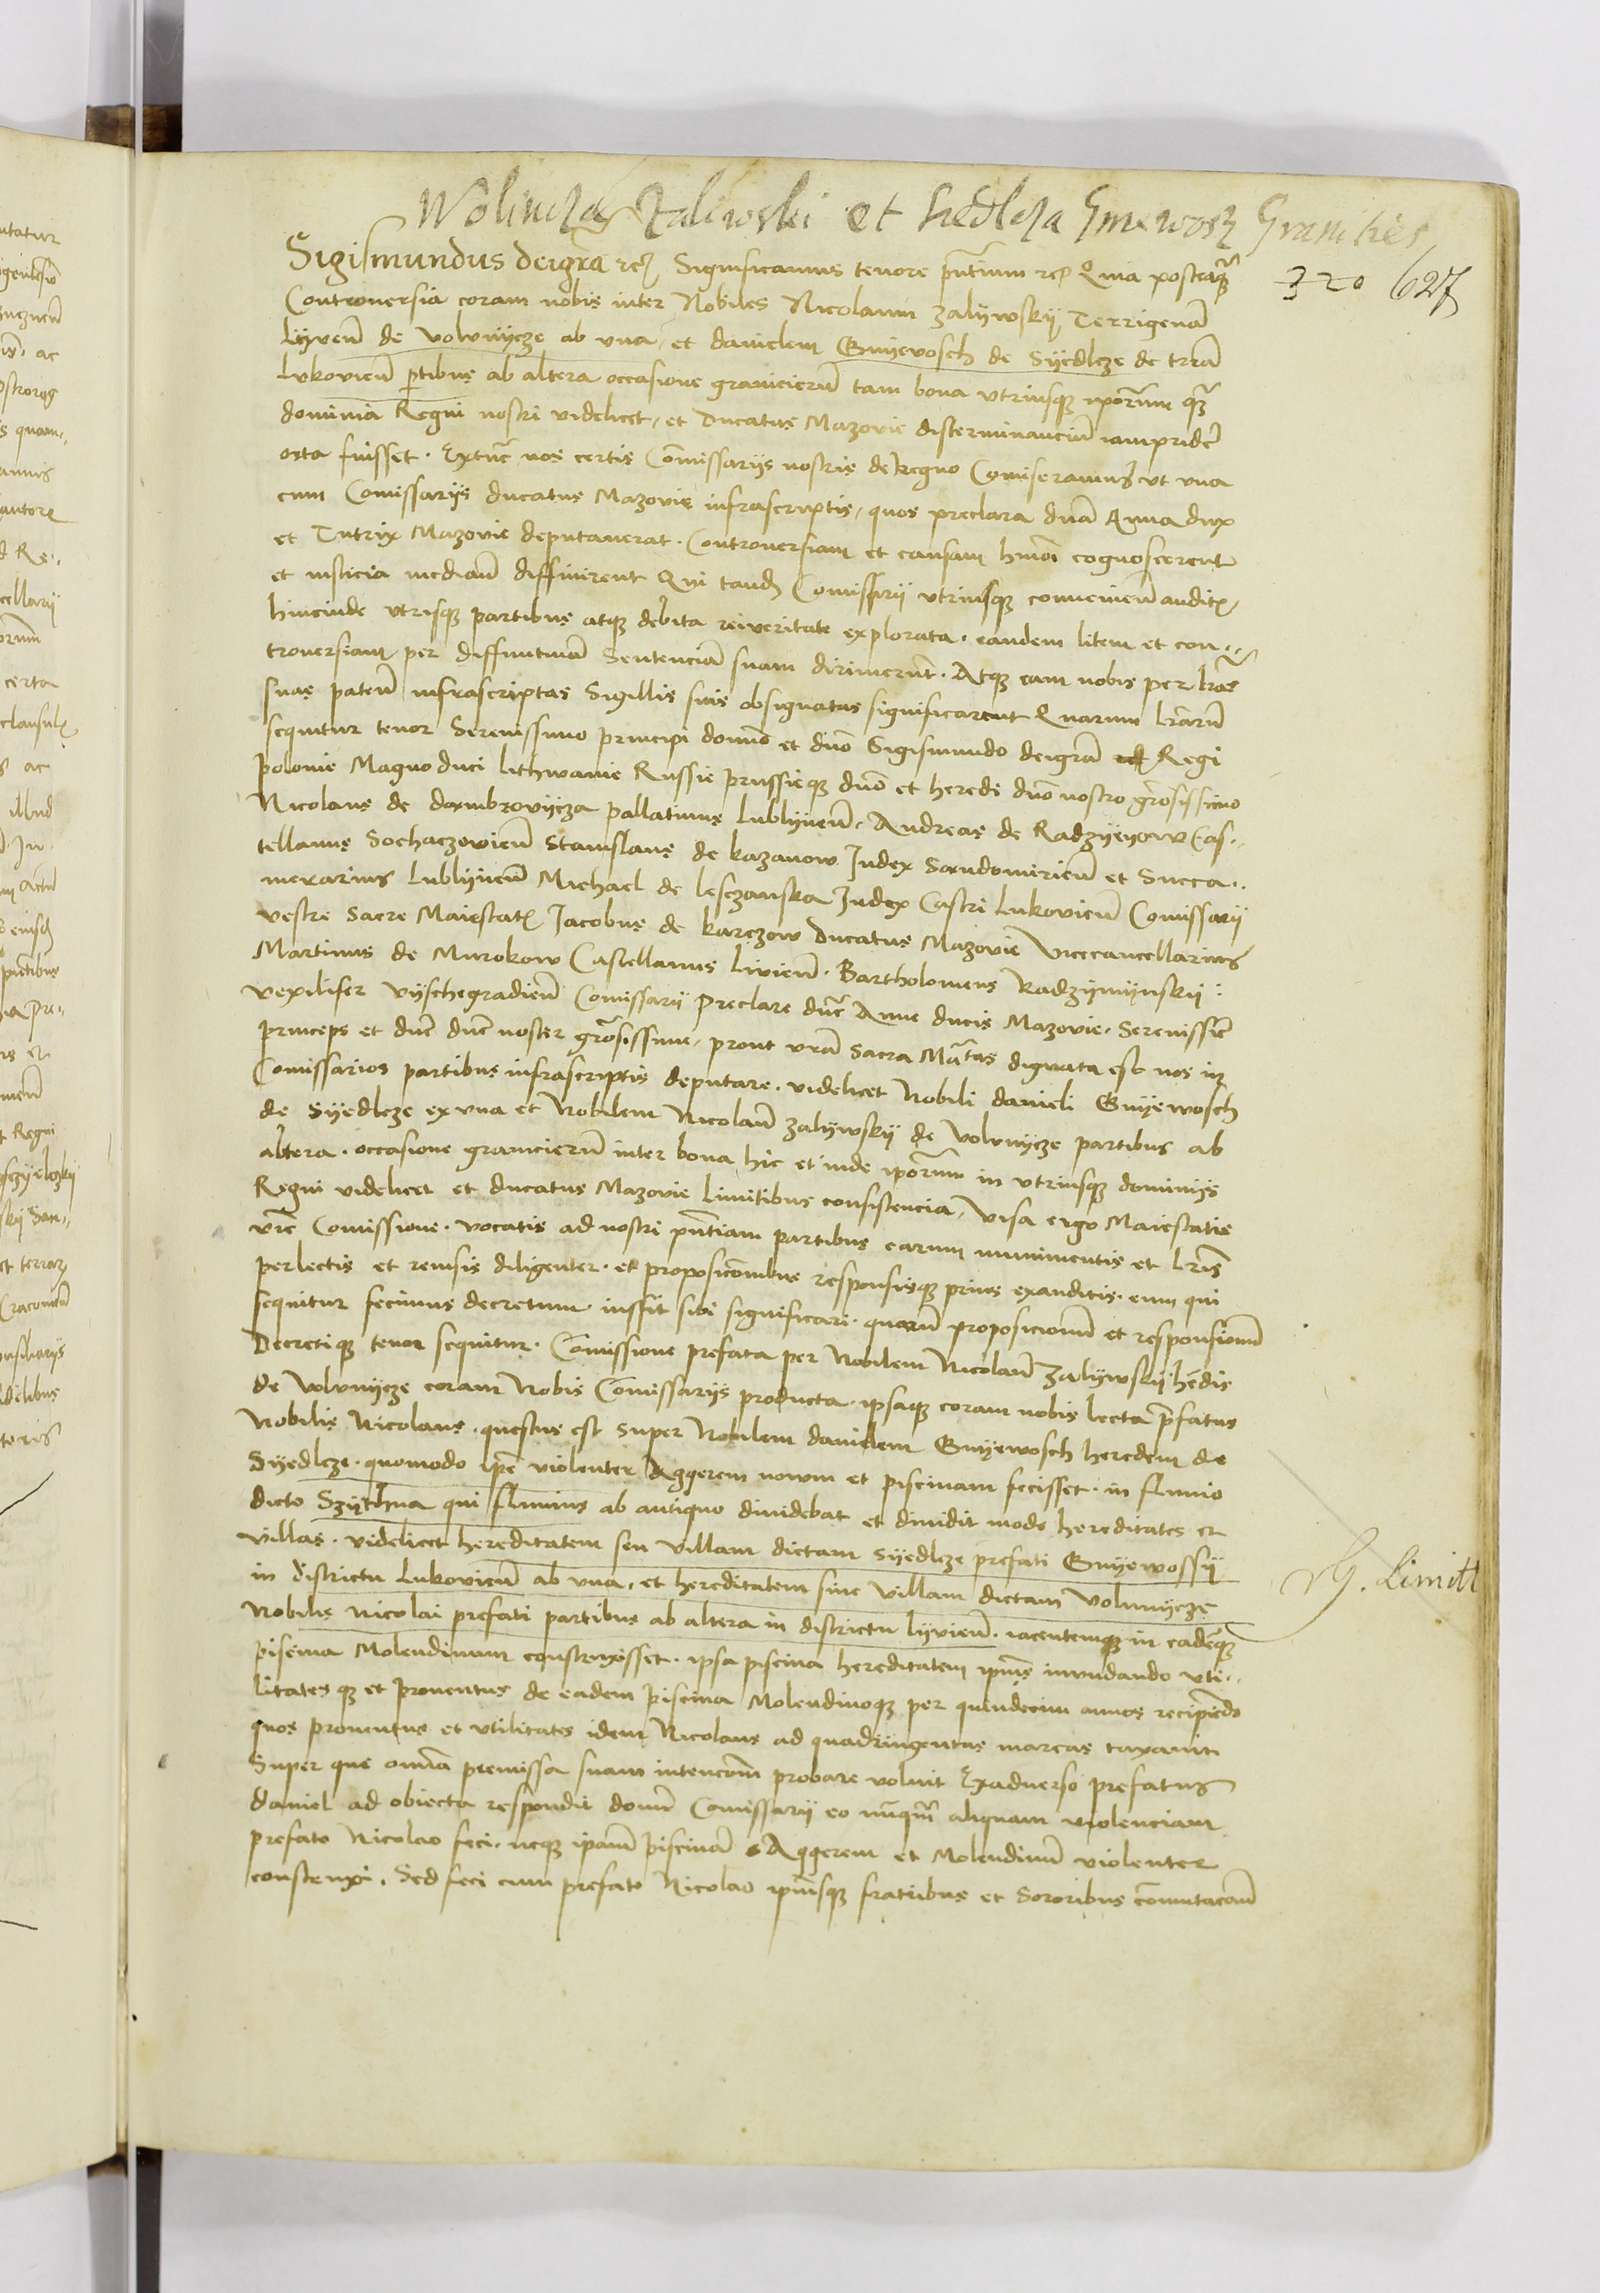 Wolincza Zaliwski et Siedlcza Gniewosz Granities
320 627
Sigismundus dei gra rex Significamus tenore pntium rc Quia posteaq
Controuersia coram nobis inter Nobiles Nicolaum Zalywsky Terrigenam
Lyven de Volunycze ab vna et danielem Gnyewosch de Syedlcze de terra
Lukovien ptibus ab altera occasione granicierum tam bona vtriusque ipsorum quam
dominia Regni nostri videlicet et Ducatus Mazovie disterminancium iampridem
orta fuisset. Extunc nos certis Comissariis nostris de Regno Comiseramus vt vna
cum Comissariis ducatus Mazovie infrascriptis, quos preclara dna Anna dux
et Tutrix Mazovie deputauerat. Controuersiam et causam hmoi cognoscerent
et iusticia median diffinirent Qui tandem Comissarii vtriusque convenien auditis
hincinde vtrisque partibus atque debita rei veritate explorata. eandem litem et con
trouersiam per diffinitiuam Sentenciam suam dirimerunt. Atque eam nobis per lras
suas paten infrascriptas Sigillis suis obsignatas significarent Quarum lrarum
sequitur tenor Serenissimo principi domino et dno Sigismundo dei gra Regi
Polonie Magno duci Lithwanie Russie prussieque dno et heredi dno nostro gratiosissimo
Nicolaus de dambrovycza pallatinus Lublynen. Andreas de Radzyeyow Cas
tellanus Sochaczovien Stanislaus de kazanow Iudex Sandomirien et Succa
merarius Lublynen Michael de lesczanka Iudex Castri Lukovien Comissarii
vestre Sacre Maiestatis Jacobus de karczow Ducatus Mazovie Vicecancellarius
Martinus de Murokow Castellanus Livien. Bartholomeus Radzymynsky
vexilifer vyschegradien Comissarii preclare dne Anne ducis Mazovie. Serenissime
princeps et dne dne noster gratiosissime, prout vra Sacra Mtas dignata est nos in
Comissarios partibus infrascriptis deputare. videlicet Nobili danieli Gnyewosch
de Syedlcze ex vna et Nobilem Nicolaum Zalywsky de Volunycze partibus ab
altera. occasione granicierum inter bona hic et inde ipsorum in vtriusque dominiis
Regni videlicet et ducatus Mazovie Limitibus consistencia, Visa ergo Maiestatis
vre Comissione. vocatis ad nostri pntiam partibus earum munimentis et lris
perlectis et reuisis diligenter. et proposicionibus responsisque prius exauditis. eum qui
sequitur fecimus decretum iussit sibi significari. quarum proposicionum et responsionum
Decretique tenor sequitur. Comissione prefata per Nobilem Nicolaum Zalywsky heredis
de Volunycze coram Nobis Comissariis producta. ipsaque coram nobis lecta prefatus
Nobilis Nicolaus. questus est super Nobilem danielem Gnyewosch heredem de
Syedlcze. quomodo ipse violenter Aggerem nouum et piscinam fecisset. in fluuio
dicto Szythna qui fluuius ab antiquo diuidebat et diuidit modo hereditates et
villas. videlicet hereditatem seu villam dictam Syedlcze prefati Gnyewossy
in districtu Lukovien ab vna. et hereditatem siue villam dictam Volunycze
Nobilis Nicolai prefati partibus ab altera in districtu lyvien. iacentemque in eademque
piscina Molendinum construxisset. ipsa piscina hereditatem ipsius inundando vti
litatesque et prouentus de eadem piscina Molendinoque per quindecim annos recipiendo
quos prouentus et vtilitates idem Nicolaus ad quadringentas marcas taxauit
Super que omnia premissa suam intencionem probare voluit Exaduerso prefatus
daniel ad obiecta respondit domini Comissarii eo nunquam aliquam violenciam
prefato Nicolao feci. neque ipsam piscinam Aggerem et Molendinum violenter
construxi. Sed feci cum prefato Nicolao ipsiusque fratribus et Sororibus comutacionem
Limit